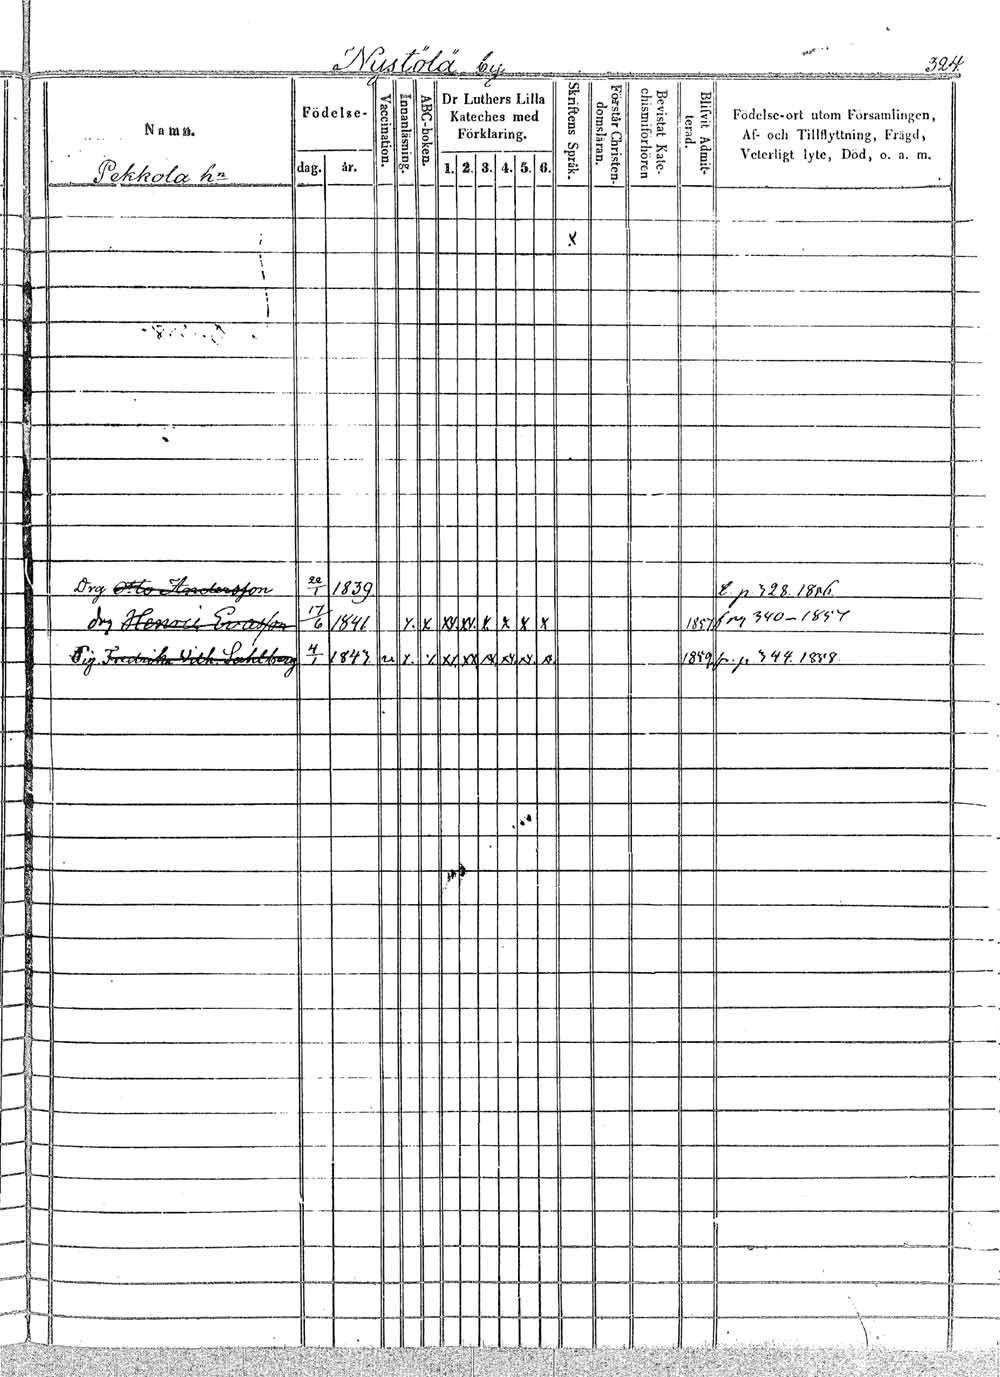 Nystölä by
324
Namn.
Pekkola hn
Födelse-
dag. år.
Vaccination.
Innanläsning.
ABC-boken.
Dr Luthers Lilla
Kateches med
Förklaring.
1. 2. 3. 4. 5. 6.
Skriftens Språk.
Förstår Christen-
domsläran.
Bevistat Kate-
chismiförhören
Blifvit Admit-
terad.
Födelse-ort utom Församlingen,
Af- och Tillflyttning, Frägd,
Veterligt lyte, Död, o. a. m.
x
Drg Otto Andersson 22/1 1839 p. 328. 1856.
drg Henric Evasson 17/6 1841 x. x xx. xx. x x x x 1857 340-1857
Pig. Fredrika Vilh. Sahlberg 4/1 1843 x. x xx. xx xx xx. xx. x. 1859 fr. p. 344. 1858.